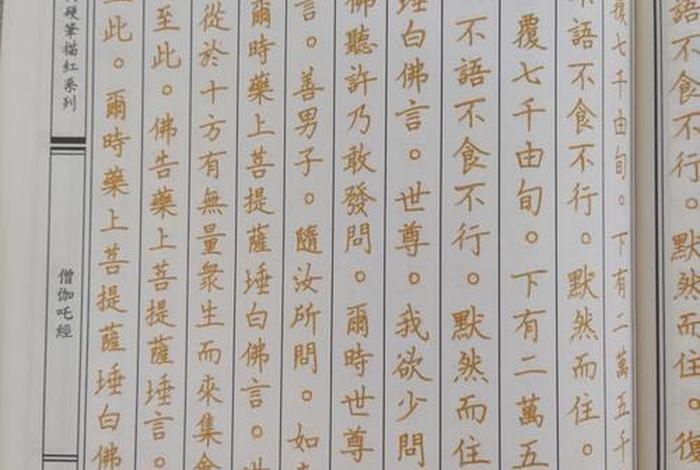 語不食不行。默然而住。
覆七千由旬。下有二萬五千
語不食不行。默然而住。
覆七千由旬。下有二萬五
不語不食不行。默然而住
埵白佛言。世尊。我欲少問
佛聽許乃敢發問。爾時世尊
言。善男子。隨汝所問。如
爾時藥上菩提薩埵白佛言。
從於十方有無量衆生而來集會
至此。佛告藥上菩提薩埵言。
至此。爾時藥上菩提薩埵白佛
硬筆描紅系列
僧伽吒經